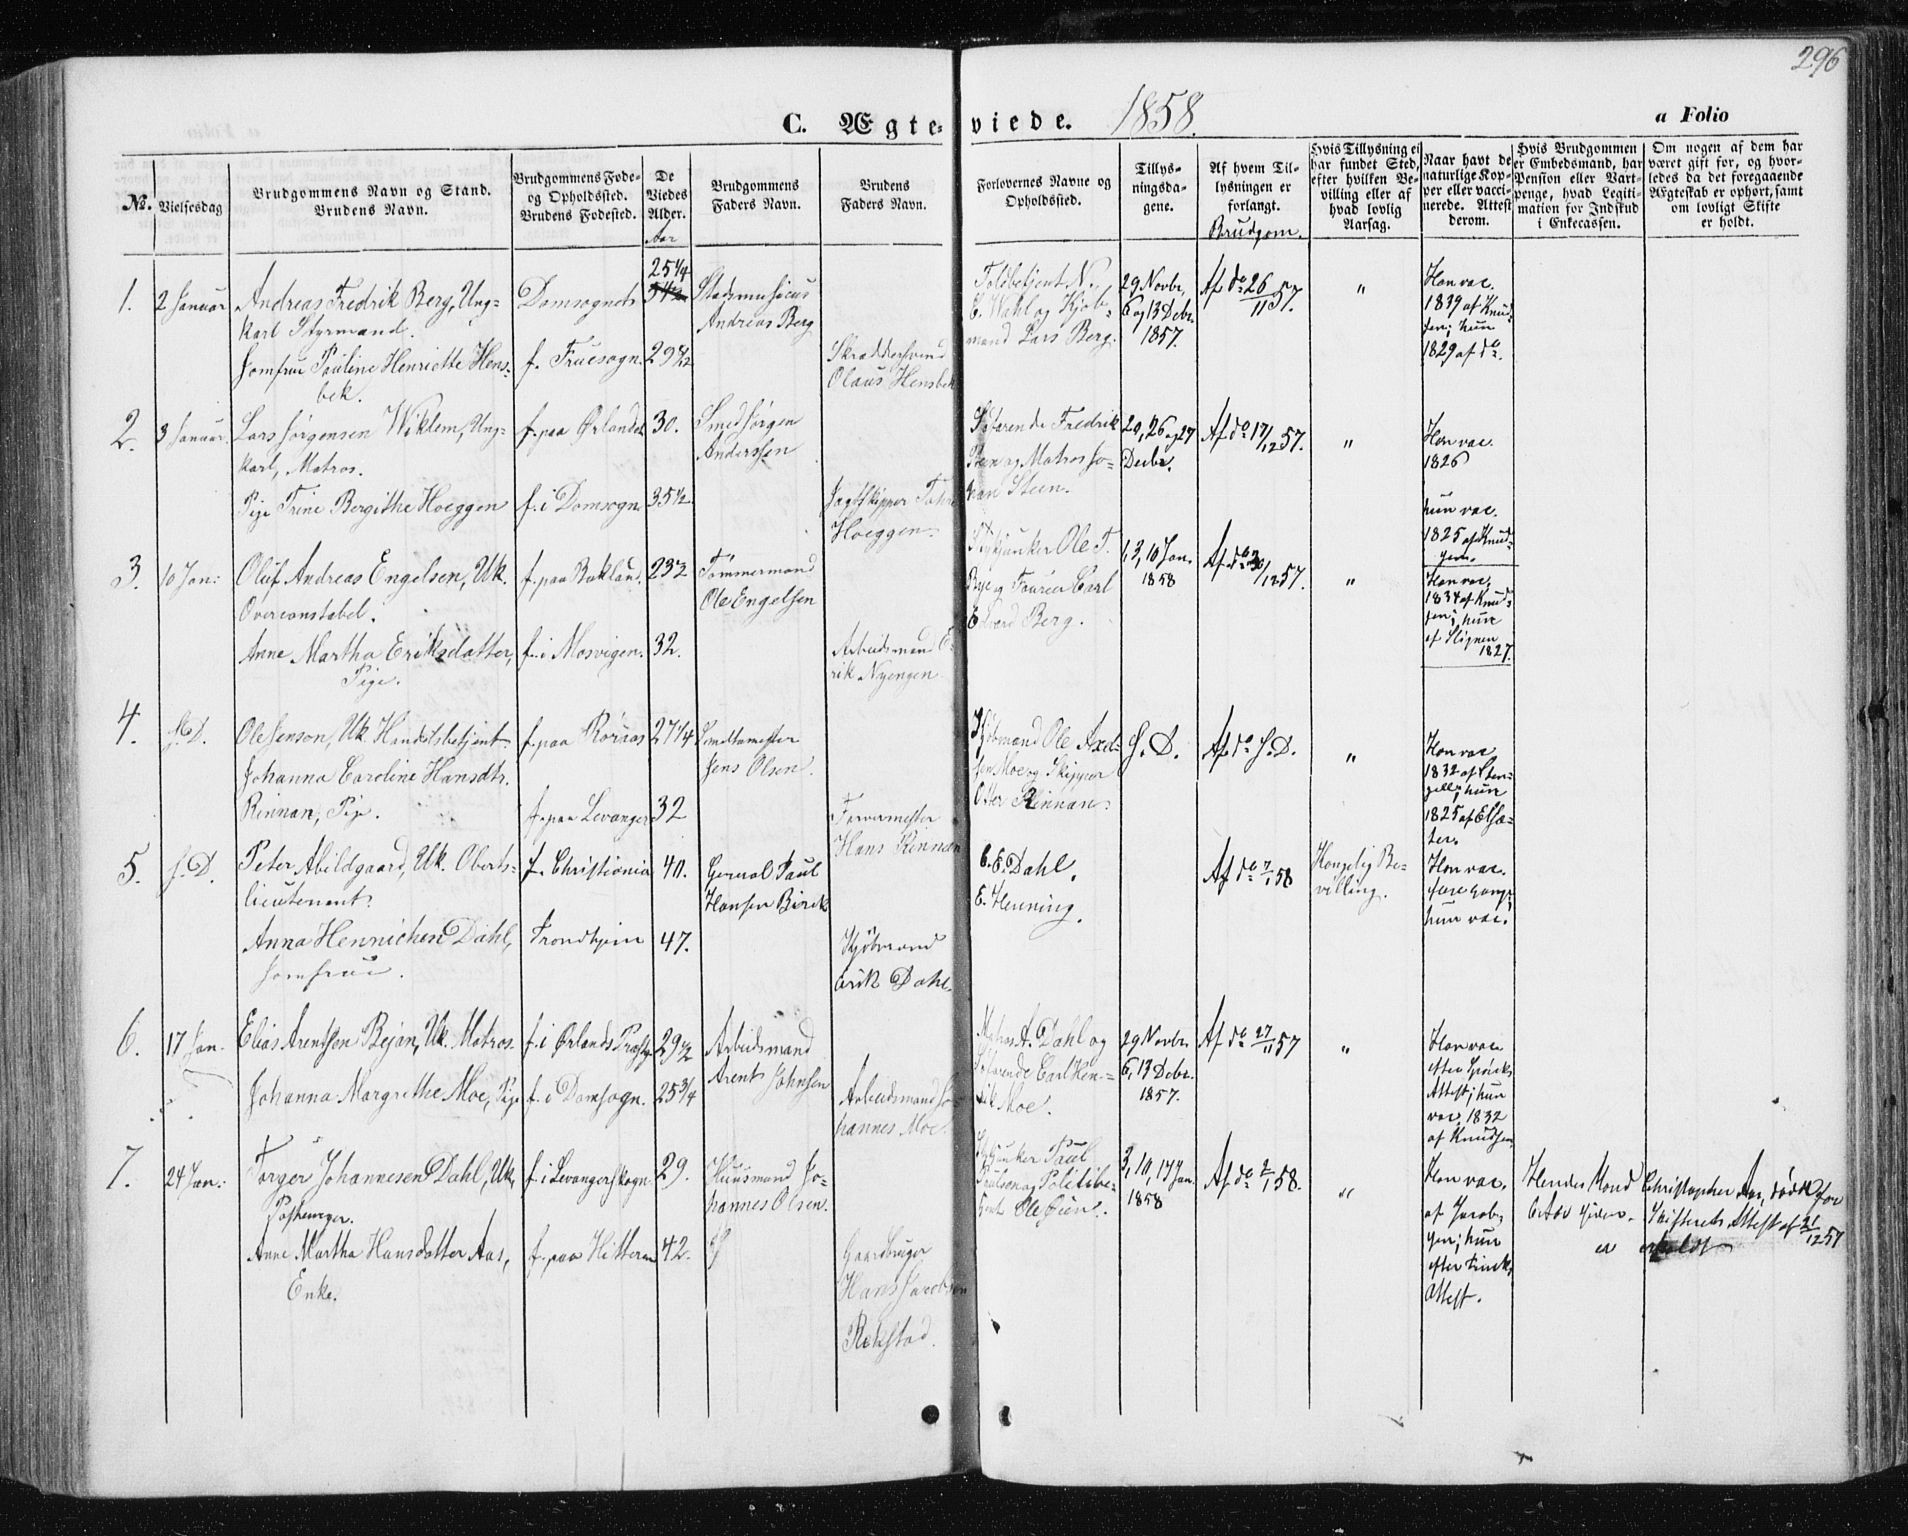 296
C. Ægteviede. 1858.
a Folio
No.
Vielsesdag
Brudgommens Navn og Stand.
Brudens Navn.
Brudgommens Føde-
og Opholdssted.
Brudens Fødested.
De
Viedes
Alder.
Aar
Brudgommens
Faders Navn.
Brudens
Faders Navn.
Forlovernes Navne og
Opholdssted.
Tillys-
ningsda-
gene.
Af hvem Til-
lysningen er
forlangt.
Brudgom.
Hvis Tillysning ei
har fundet Sted,
efter hvilken Be-
villing eller af
hvad lovlig
Aarsag.
Naar havt de
naturlige Kop-
per eller vacci-
nerede. Attest
derom.
Hvis Brudgommen
er Embedsmand, har
Pension eller Vart-
penge, hvad Legiti-
mation for Indskud
i Enkecassen.
Om nogen af dem har
været gift for, og hvor-
ledes da det foregaaende
Ægteskab er ophørt, samt
om lovligt Skifte
er holdt.
1. 2 Januar
Andreas Fredrik Berg, Ung-
karl Styrmand.
Jomfru Pauline Henriette Hens-
bek.
Domsognet
f. Fruesogn.
25 1/4
29 1/2
Stadsmusicus
Andreas Berg
Skræddersvend
Olaus Hensbek
Toldbetjent N.
C. Wahl og Kjøb-
mand Lars Berg.
29 Novbr.
6 og 13 Debr.
1857.
Af do 26/11 57.
"
Han vac.
1839 af Knud-
sen; hun
1829 af do.
2. 3 Januar.
Lars Jørgensen Wiklem, Ung-
karl, Matros.
Pige Trine Bergithe Hoeggen
f. paa Ørlandet
f. i Domsogn
30.
35 1/2
Smed Jørgen
Anderssen
Jagtskipper
Hoeggen.
Søfarende Fredrik
Steen og Matros Jo-
han Steen.
20, 26 og 27
Decbr.
Af do 17/12 57.
"
Han vac.
1826
hun vac.
1825 af Knud-
sen.
3. 10 Jan:
Oluf Andreas Engelsen, Uk.
Overconstabel.
Anne Martha Eriksdatter,
Pige.
f. paa Bakland.
f. i Mosvigen.
32.
Tømmermand
Ole Engelsen
Arbeidsmand E-
rik Nyengen
Stykjunker Ole T.
Bye og Fourer Carl
Edvard Berg.
1, 3, 10 Jan.
1858
Af do 30/12 57.
"
Han vac.
1834 af Knud-
sen; hun
af Slignen
1827.
4. S. D.
Ole Jenson, Uk. Handelsbetjent.
Johanna Caroline Hansdtr.
Rinnan, Pige.
f. paa Røraas
f. paa Levanger
27 1/4
32
Smeltemester
Jens Olsen.
Farvermester
Hans Rinnan
Kjøbmand Ole Axel-
sen Moe og Skipper
Otter Rinnan.
S. D.
Af do S. D.
"
Han vac
1832 af
hun
1825 af
5. S. D.
Peter Abildgaard, Uk. Oberts-
lieutenant.
Anna Hennichen Dahl,
Jomfru.
f. Christiania
Trondhjem
40.
47.
General Paul
Hansen Birch
Kjøbmand
Erik Dahl.
C. E. Dahl.
E. Henning.
Af do 7/1 58
Kongelig Be-
villing.
Han vac.
hun vac.
6. 17 Jan.
Elias Arentsen Bejan, Uk. Matros
Johanna Margrethe Moe, Pige
f. i Ørlands Præstg.
f. i Domsogn.
29 1/2
25 3/4
Arbeidsmand
Arent Johnsen
Arbeidsmand Jo-
hannes Moe.
Matros A. Dahl og
Søfarende Carl Hen-
rik Moe.
29 Novbr.
6, 13 Debr.
1857.
Af do 27/11 57
"
Han vac.
efter
Attest; hun
vac. 1832
af Knudsen
7. 24 Jan:
Torger Johannesen Dahl, Uk.
Anne Martha Hansdatter Aas,
Enke.
f. i Levanger Skogn.
f. paa Hitteren
29.
42.
Huusmand Jo-
hannes Olsen.
Gaardbruger
Hans Jacobsen
Rekstad.
Stykjunker Paul
Poulsen og Politibe-
tjent Ole Øien.
3, 10, 17 Jan.
1858
Af do 2/1 58.
"
Han vac.
af Jacob-
sen; hun
efter
Attest.
Hendes Mand Christopher Aas, døde for
6 Aar siden. Skifterets Attest af 21/12 57
er